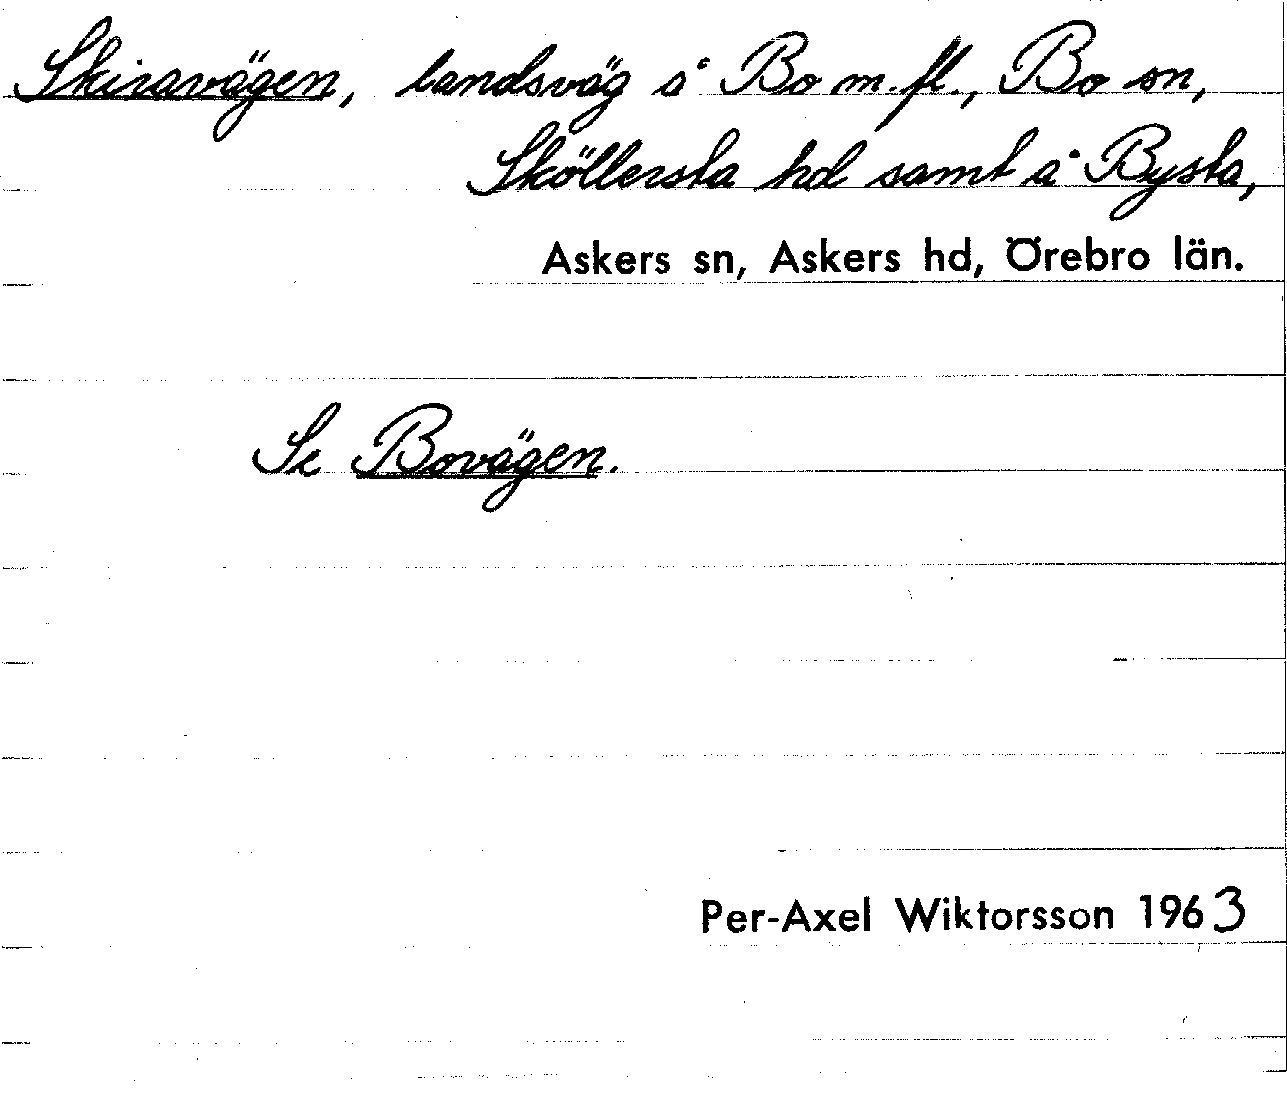 Skiravägen, landsväg å Bo m.fl., Bo sn,
Sköllersta hd samt å Bysta,
Askers sn, Askers hd, Örebro län.
Se Bovägen.
Per-Axel Wiktorsson 1963